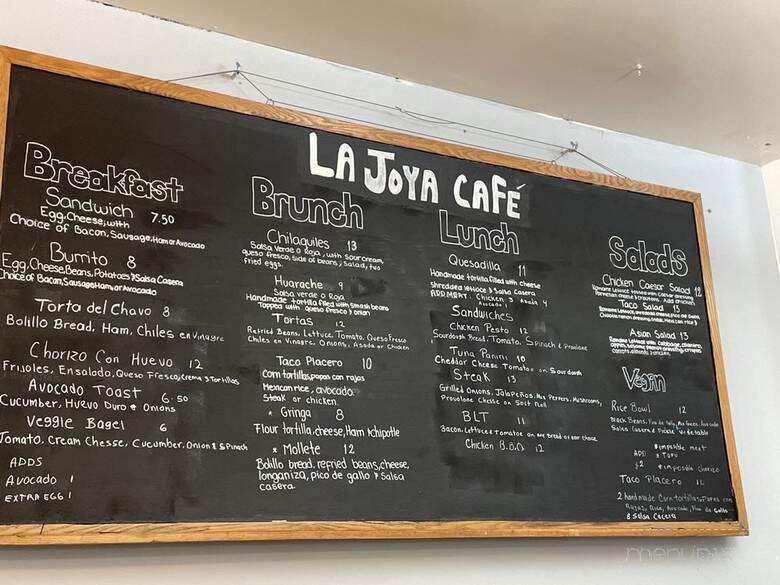 LA JOYA CAFÉ
Breakfast
Sandwich 7.50
Egg, Cheese, with
Choice of Bacon, Sausage, Ham or Avocado
Burrito 8
Egg, Cheese, Beans, Potatoes & Salsa Casera
Choice of Bacon, Sausage, Ham or Avocado
Torta del Chavo 8
Bolillo Bread, Ham, Chiles en Vinagre
Chorizo Con Huevo 12
Frijoles, Ensalada, Queso Fresco, Crema & Tortillas
Avocado Toast 6.50
Cucumber, Huevo Duro & Onions
Veggie Bagel 6
Tomato, Cream Chesse, Cucumber, Onion & Spinach
ADDS
Avocado 1
EXTRA EGG 1
Brunch
Chilaquiles 13
Salsa Verde o Roja, with sour cream,
queso fresco, side of beans, Salad, two
fried eggs.
Huarache 9
Salsa verde o Roja
Handmade tortilla filled with smash beans
Topped with queso fresco & onion
Tortas 12
Refried Beans, Lettuce, Tomato, Queso Fresco
Chiles en Vinagre, Onions, Asada or Chicken
Taco Placero 10
Corn tortillas, papas con rajas
Mexican rice, avocado
Steak or chicken
* Gringa 8
Flour tortilla, cheese, Ham & chipotle
* Mollete 12
Bolillo bread, refried beans, cheese,
longaniza, pico de gallo & Salsa
casera
Lunch
Quesadilla 11
Handmade tortilla filled with cheese
Shredded lettuce & Salsa Casera
ADD MEAT: Chicken 3 Asada 4
Avocado 1
Sandwiches
Chicken Pesto 12
Sourdough Bread, Tomato, Spinach & Provolone
Tuna Panini 10
Cheddar Cheese Tomatoe on Sourdough
Steak 13
Grilled Onions, Jalapeños, Mix Peppers, Mushrooms,
Provolone Cheese on Soft Roll
BLT 11
Bacon, Lettuce & Tomatoe on any Bread of your choice
Chicken B.B.Q 12
Salads
Chicken Caesar Salad 12
Romaine Lettuce tossed with Caesar dressing,
Parmesan cheese & Croutons. Add chicken
Taco Salad 13
Asian Salad 13
Romaine Lettuce with cabbage, cilantro,
carrots almonds, chicken
Vegan
Rice Bowl 12
Black Beans, Pico de Gallo, Mix Green, Avocado
Salsa Casera &
* impossible meat
ADD * Tofu
$2 * impossible chorizo
Taco Placero 11
2 handmade Corn tortillas, Papas con
Rajas, Rice, Avocado, Pico de Gallo
& Salsa Casera